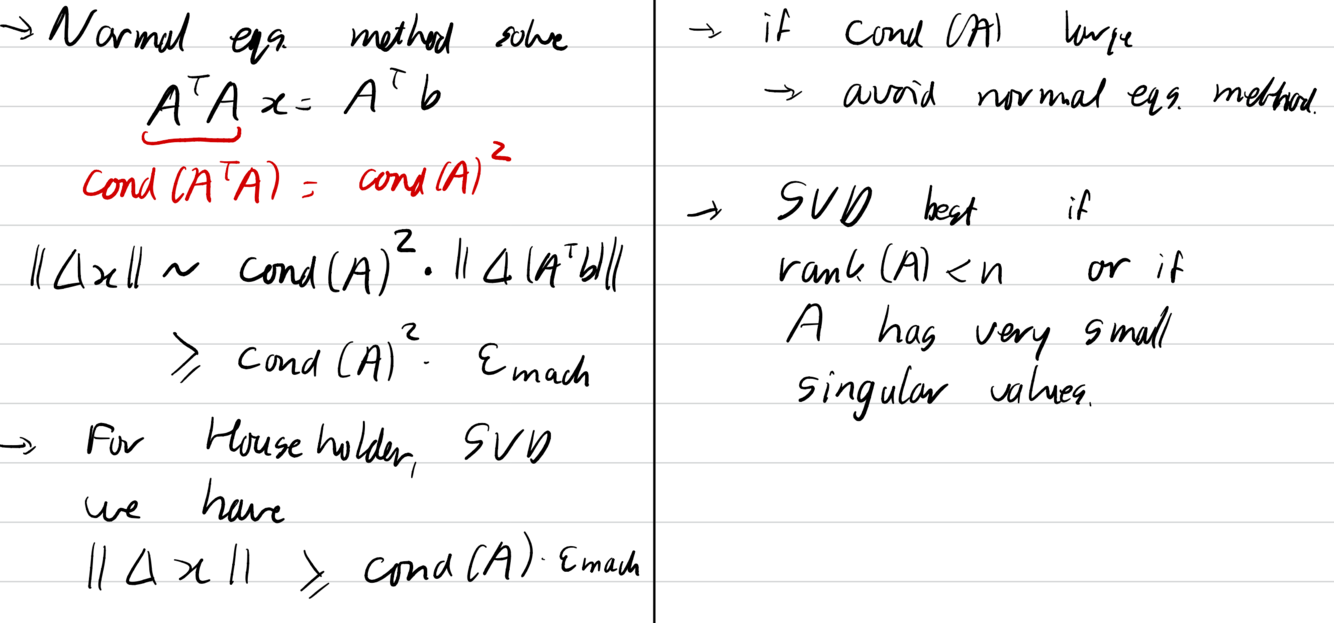 → Normal eqs. method solve
AᵀA x = Aᵀb
cond(AᵀA) = cond(A)²
||Δx|| ~ cond(A)² · ||Δ(Aᵀb)||
⩾ cond(A)² · εmach
→ For Householder, SVD
we have
||Δx|| ⩾ cond(A) · εmach
→ if cond(A) large
→ avoid normal eqs. method.
→ SVD best if
rank(A) < n or if
A has very small
singular values.